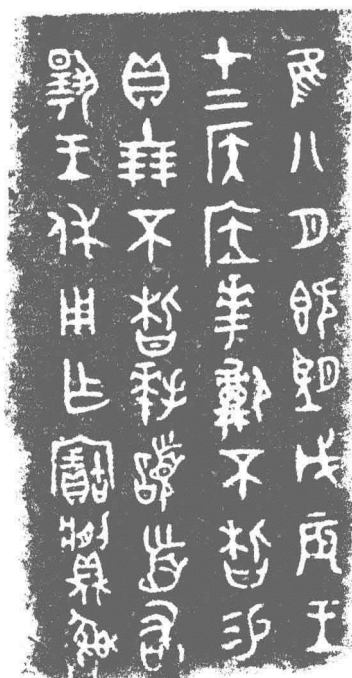 隹八月既望戊辰王
才上侯𢉩𠦪祼不㫊易
貝十朋不㫊拜𩒨首敢
揚王休用乍寶𩰬彝